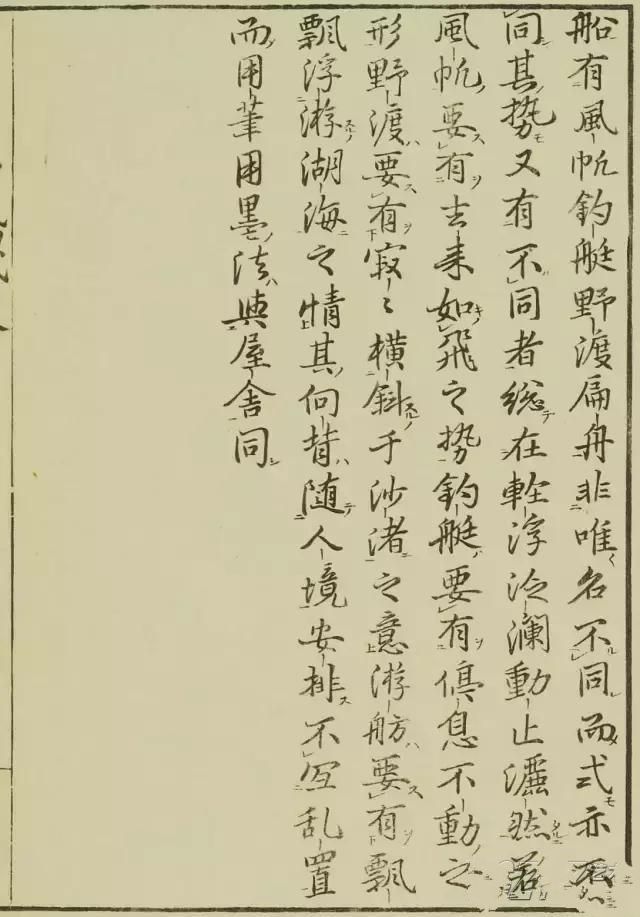 船有風帆釣艇野渡扁舟非唯名不同而式亦不
同其势又有不同者総在輕浮泛瀾動止灑然若
風帆要有去来如飛之势釣艇要有停息不動之
形野渡要有寂〻橫斜于沙渚之意游舫要有飄
飄浮游湖海之情其向背随人境安排不宜乱置
而用筆用墨法與屋舍同